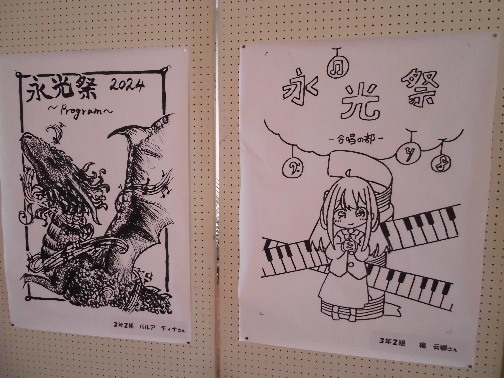 永光祭 2024
～Program～
3年2組 バルア ティナさん
永光祭
－合唱の部－
3年2組